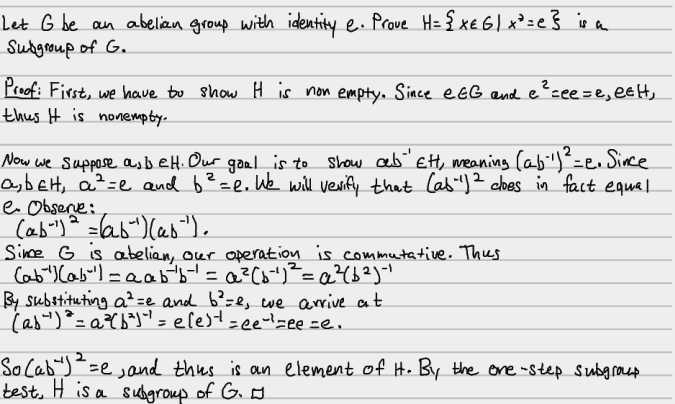 Let G be an abelian group with identity e. Prove H={x∈G | x²=e} is a
Subgroup of G.
Proof: First, we have to show H is non empty. Since e∈G and e²=ee=e, e∈H,
thus H is nonempty.
Now we suppose a,b∈H. Our goal is to show ab⁻¹∈H, meaning (ab⁻¹)²=e. Since
a,b∈H, a²=e and b²=e. We will verify that (ab⁻¹)² does in fact equal
e. Observe:
(ab⁻¹)²=(ab⁻¹)(ab⁻¹).
Since G is abelian, our operation is commutative. Thus
(ab⁻¹)(ab⁻¹)=aab⁻¹b⁻¹=a²(b⁻¹)²=a²(b²)⁻¹
By substituting a²=e and b²=e, we arrive at
(ab⁻¹)²=a²(b²)⁻¹=e(e)⁻¹=ee⁻¹=ee=e.
So (ab⁻¹)²=e, and thus is an element of H. By the one-step subgroup
test, H is a subgroup of G. □